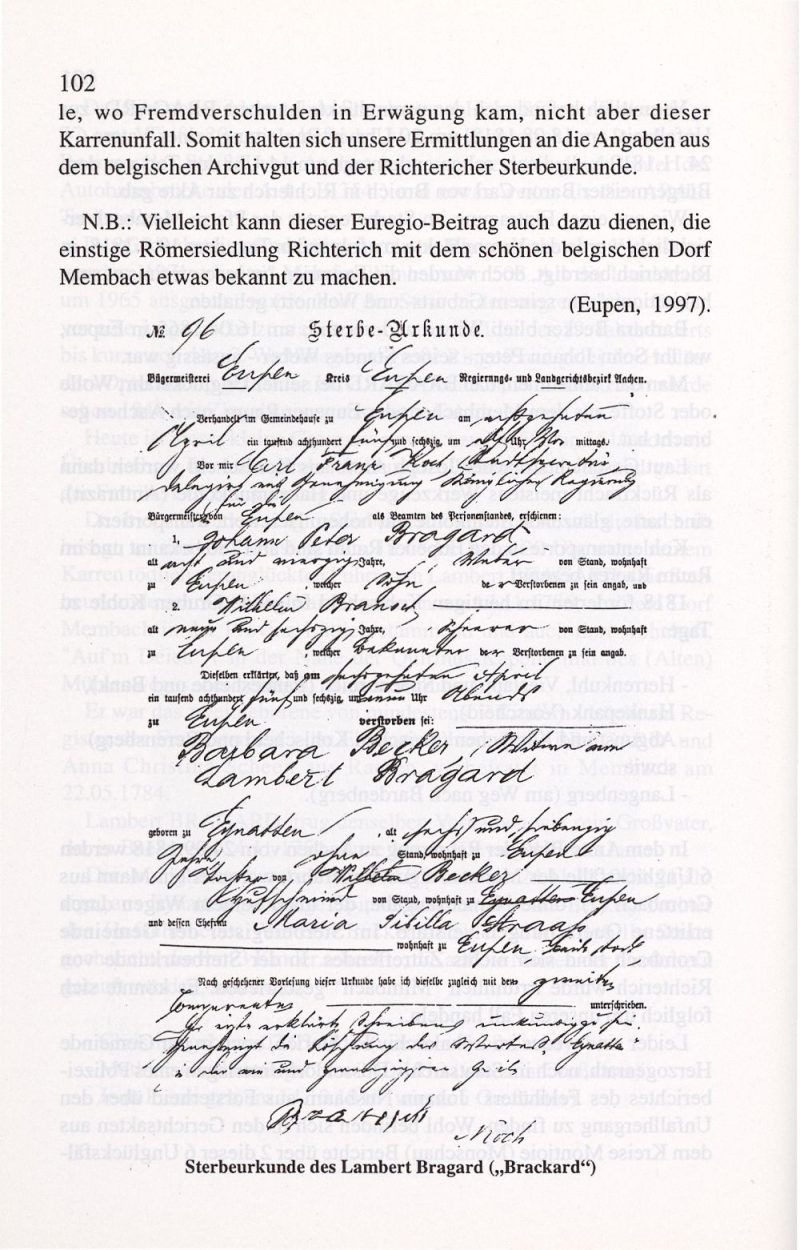 102
le, wo Fremdverschulden in Erwägung kam, nicht aber dieser
Karrenunfall. Somit halten sich unsere Ermittlungen an die Angaben aus
dem belgischen Archivgut und der Richtericher Sterbeurkunde.
N.B.: Vielleicht kann dieser Euregio-Beitrag auch dazu dienen, die
einstige Römersiedlung Richterich mit dem schönen belgischen Dorf
Membach etwas bekannt zu machen.
(Eupen, 1997).
№ 96 Sterbe-Urkunde.
Bürgermeisterei Eupen Kreis Eupen Regierungs- und Landgerichtsbezirk Aachen.
Verhandelt im Gemeindehause zu Eupen am achtzehnten
April ein tausend achthundert fünf und sechszig, um Uhr Vor mittags.
Vor mir Carl Franz Koch
delegirt mit Genehmigung Königlicher Regierung
Bürgermeister von Eupen als Beamten des Personenstandes, erschienen:
1, Johann Peter Bragard
alt acht und vierzig Jahre, Weber von Stand, wohnhaft
zu Eupen, welcher Sohn de r Verstorbenen zu sein angab, und
2. Wilhelm
alt neun und sechszig Jahre, Scherer von Stand, wohnhaft
zu Eupen, welcher Bekannter der Verstorbenen zu sein angab.
Dieselben erklärten, daß am sechszehnten April
ein tausend achthundert fünf und sechszig, um neun Uhr Abends
zu Eupen verstorben sei:
Barbara Becker, Wittwe von
Lambert Bragard
geboren zu Eynatten, alt sechs und siebenzig
Jahre, ohne Stand, wohnhaft zu Eupen
Tochter von Wilhelm Becker
von Stand, wohnhaft zu Eynatten Eupen
und dessen Ehefrau Maria Sibilla
wohnhaft zu Eupen, beide todt
Nach geschehener Vorlesung dieser Urkunde habe ich dieselbe zugleich mit dem zweiten
Comparenten unterschrieben.
Der erste erklärte Schreibens unkundig zu sein.
Koch
Sterbeurkunde des Lambert Bragard („Brackard“)